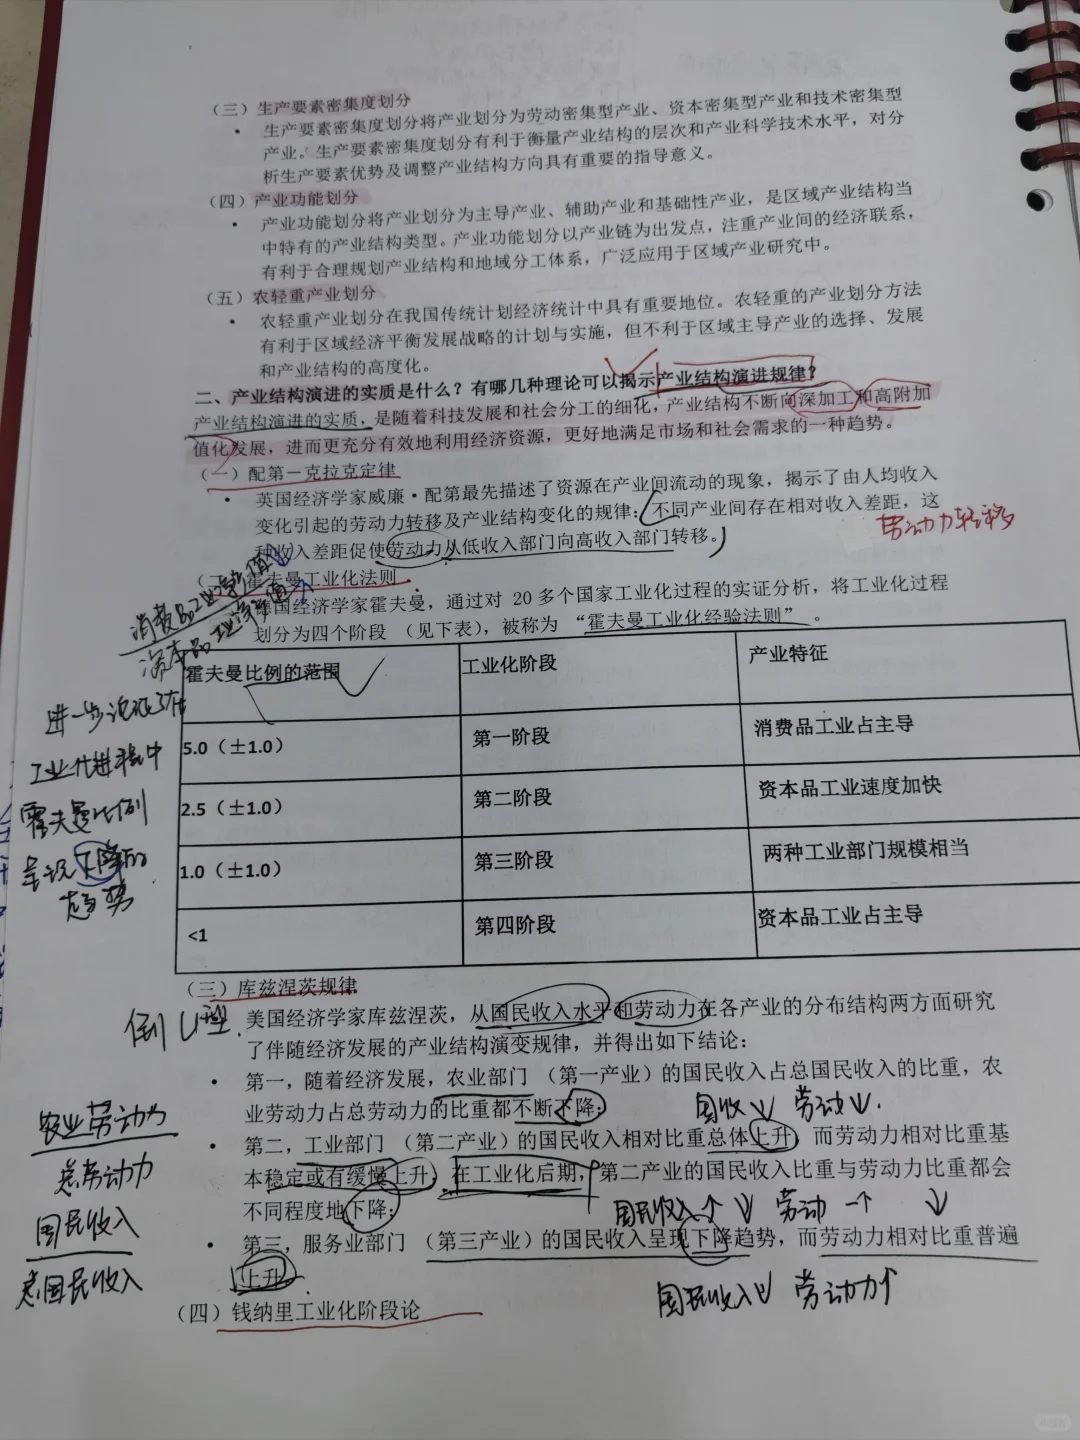 （三）生产要素密集度划分
• 生产要素密集度划分将产业划分为劳动密集型产业、资本密集型产业和技术密集型
产业。生产要素密集度划分有利于衡量产业结构的层次和产业科学技术水平，对分
析生产要素优势及调整产业结构方向具有重要的指导意义。
（四）产业功能划分
• 产业功能划分将产业划分为主导产业、辅助产业和基础性产业，是区域产业结构当
中特有的产业结构类型。产业功能划分以产业链为出发点，注重产业间的经济联系，
有利于合理规划产业结构和地域分工体系，广泛应用于区域产业研究中。
（五）农轻重产业划分
• 农轻重产业划分在我国传统计划经济统计中具有重要地位。农轻重的产业划分方法
有利于区域经济平衡发展战略的计划与实施，但不利于区域主导产业的选择、发展
和产业结构的高度化。
二、产业结构演进的实质是什么？有哪几种理论可以揭示产业结构演进规律？
产业结构演进的实质，是随着科技发展和社会分工的细化，产业结构不断向深加工和高附加
值化发展，进而更充分有效地利用经济资源，更好地满足市场和社会需求的一种趋势。
（一）配第－克拉克定律
• 英国经济学家威廉·配第最先描述了资源在产业间流动的现象，揭示了由人均收入
变化引起的劳动力转移及产业结构变化的规律：不同产业间存在相对收入差距，这
种收入差距促使劳动力从低收入部门向高收入部门转移。
劳动力转移
（二）霍夫曼工业化法则
消费品工业净产值↓
资本品工业净产值↑
德国经济学家霍夫曼，通过对 20 多个国家工业化过程的实证分析，将工业化过程
划分为四个阶段 （见下表），被称为 “霍夫曼工业化经验法则” 。
霍夫曼比例的范围 工业化阶段 产业特征
5.0（±1.0） 第一阶段 消费品工业占主导
2.5（±1.0） 第二阶段 资本品工业速度加快
1.0（±1.0） 第三阶段 两种工业部门规模相当
<1 第四阶段 资本品工业占主导
进一步论证了在
工业化进程中
霍夫曼比例
呈现下降的
趋势
（三）库兹涅茨规律
倒U型
美国经济学家库兹涅茨，从国民收入水平和劳动力在各产业的分布结构两方面研究
了伴随经济发展的产业结构演变规律，并得出如下结论：
• 第一，随着经济发展，农业部门 （第一产业）的国民收入占总国民收入的比重，农
业劳动力占总劳动力的比重都不断下降；
国收↓ 劳动↓.
• 第二，工业部门 （第二产业）的国民收入相对比重总体上升，而劳动力相对比重基
本稳定或有缓慢上升，在工业化后期，第二产业的国民收入比重与劳动力比重都会
不同程度地下降；
国民收入↑ ↓ 劳动 一↑ ↓
• 第三，服务业部门 （第三产业）的国民收入呈现下降趋势，而劳动力相对比重普遍
上升
国民收入↓ 劳动力↑
农业劳动力
总劳动力
国民收入
总国民收入
（四）钱纳里工业化阶段论